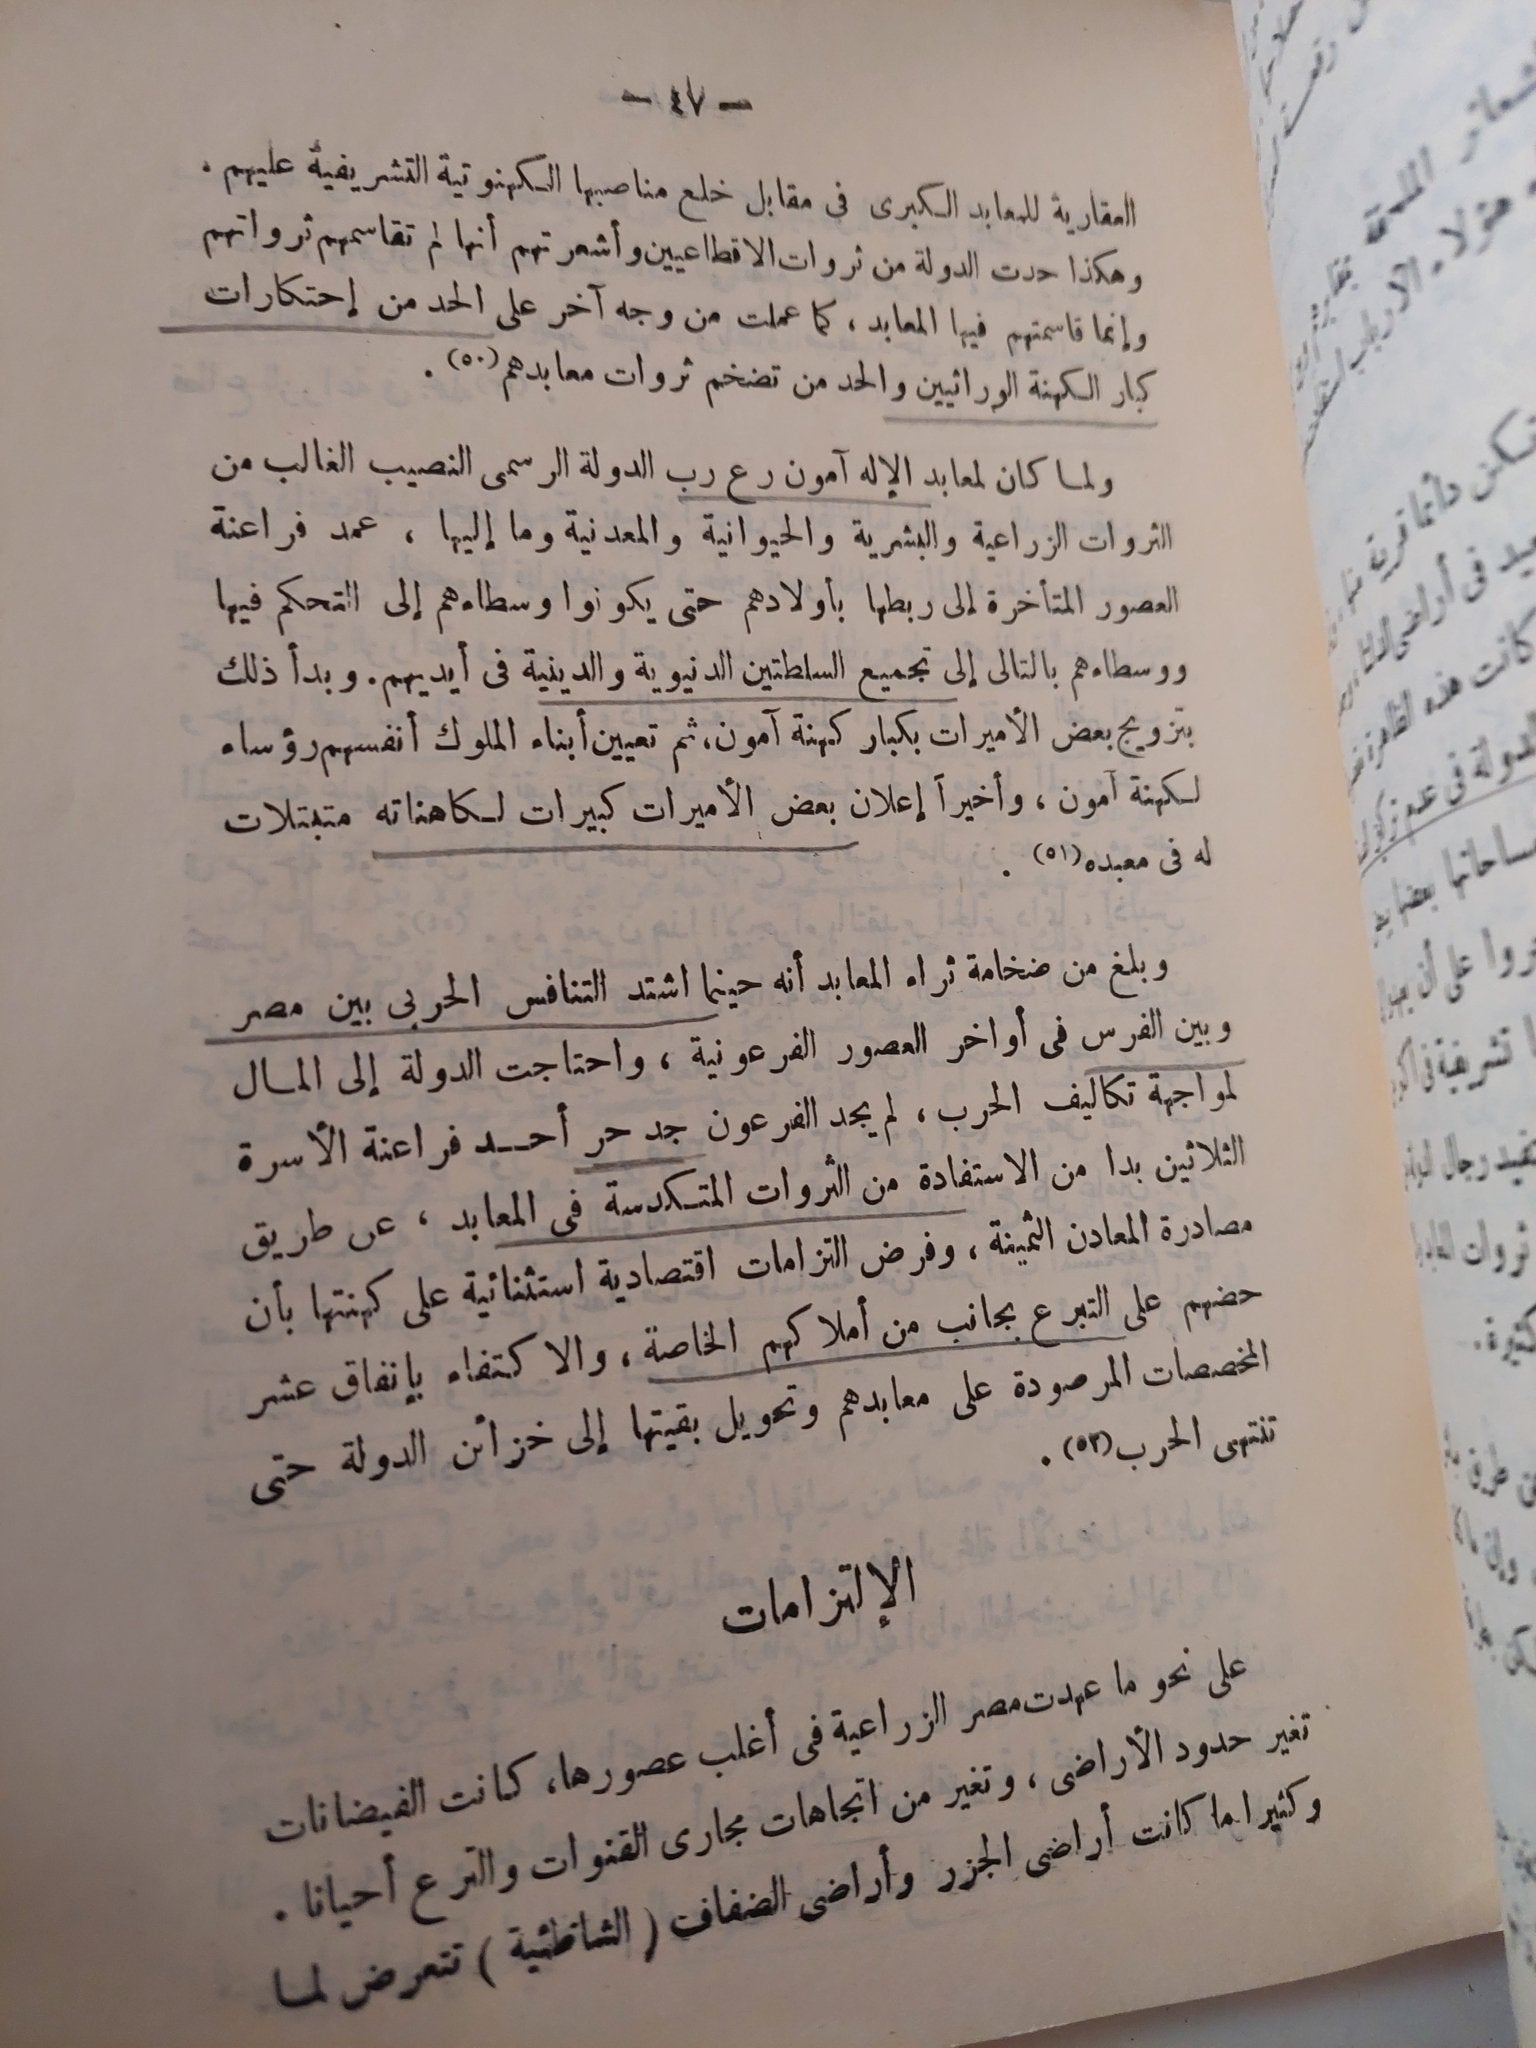 — ٤٧ —
العقارية للمعابد الكبرى فى مقابل خلع مناصبها الكهنوتية التشريفية عليهم .
وهكذا حدت الدولة من ثروات الاقطاعيين وأشعرتهم أنها لم تقاسمهم ثرواتهم
وإنما قاسمتهم فيها المعابد ، كما عملت من وجه آخر على الحد من إحتكارات
كبار الكهنة الوراثيين والحد من تضخم ثروات معابدهم (٥٠) .
ولما كان لمعابد الإله آمون رع رب الدولة الرسمى النصيب الغالب من
الثروات الزراعية والبشرية والحيوانية والمعدنية وما إليها ، عمد فراعنة
العصور المتأخرة إلى ربطها بأولادهم حتى يكونوا وسطاءهم إلى التحكم فيها
ووسطاءهم بالتالى إلى تجميع السلطتين الدنيوية والدينية فى أيديهم . وبدأ ذلك
بتزويج بعض الأميرات بكبار كهنة آمون ، ثم تعيين أبناء الملوك أنفسهم رؤساء
لكهنة آمون ، وأخيراً إعلان بعض الأميرات كبيرات لكاهناته متبتلات
له فى معبده (٥١) .
وبلغ من ضخامة ثراء المعابد أنه حينما اشتد التنافس الحربى بين مصر
وبين الفرس فى أواخر العصور الفرعونية ، واحتاجت الدولة إلى المال
لمواجهة تكاليف الحرب ، لم يجد الفرعون جد حر أحد فراعنة الأسرة
الثلاثين بدا من الاستفادة من الثروات المتكدسة فى المعابد ، عن طريق
مصادرة المعادن الثمينة ، وفرض التزامات اقتصادية استثنائية على كهنتها بأن
حضهم على التبرع بجانب من أملاكهم الخاصة ، والاكتفاء بإنفاق عشر
المخصصات المرصودة على معابدهم وتحويل بقيتها إلى خزائن الدولة حتى
تنتهى الحرب (٥٢) .
الإلتزامات
على نحو ما عهدت مصر الزراعية فى أغلب عصورها ، كانت الفيضانات
تغير حدود الأراضى ، وتغير من اتجاهات مجارى القنوات والترع أحيانا .
وكثيرا ما كانت أراضى الجزر وأراضى الضفاف ( الشاطئية ) تتعرض لما